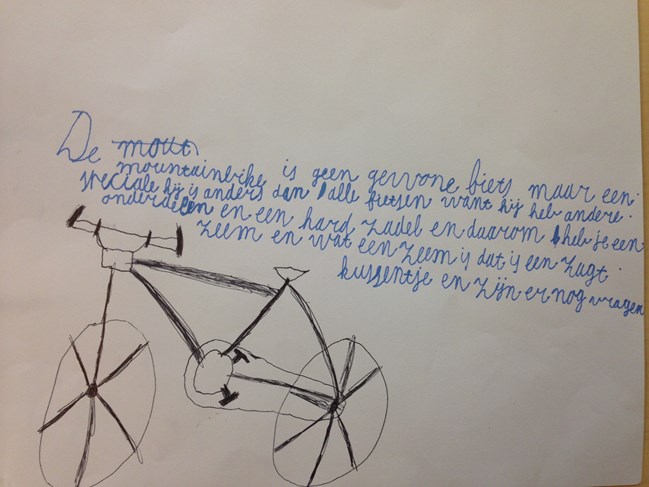 De mout
mountainbike is geen gewone fiets maar een
speciale hij is anders dan alle fietsen want hij heb andere
onderdelen en een hard zadel en daarom heb je een
zeem en wat een zeem is dat is een zagt
kussentje en zijn er nog vragen